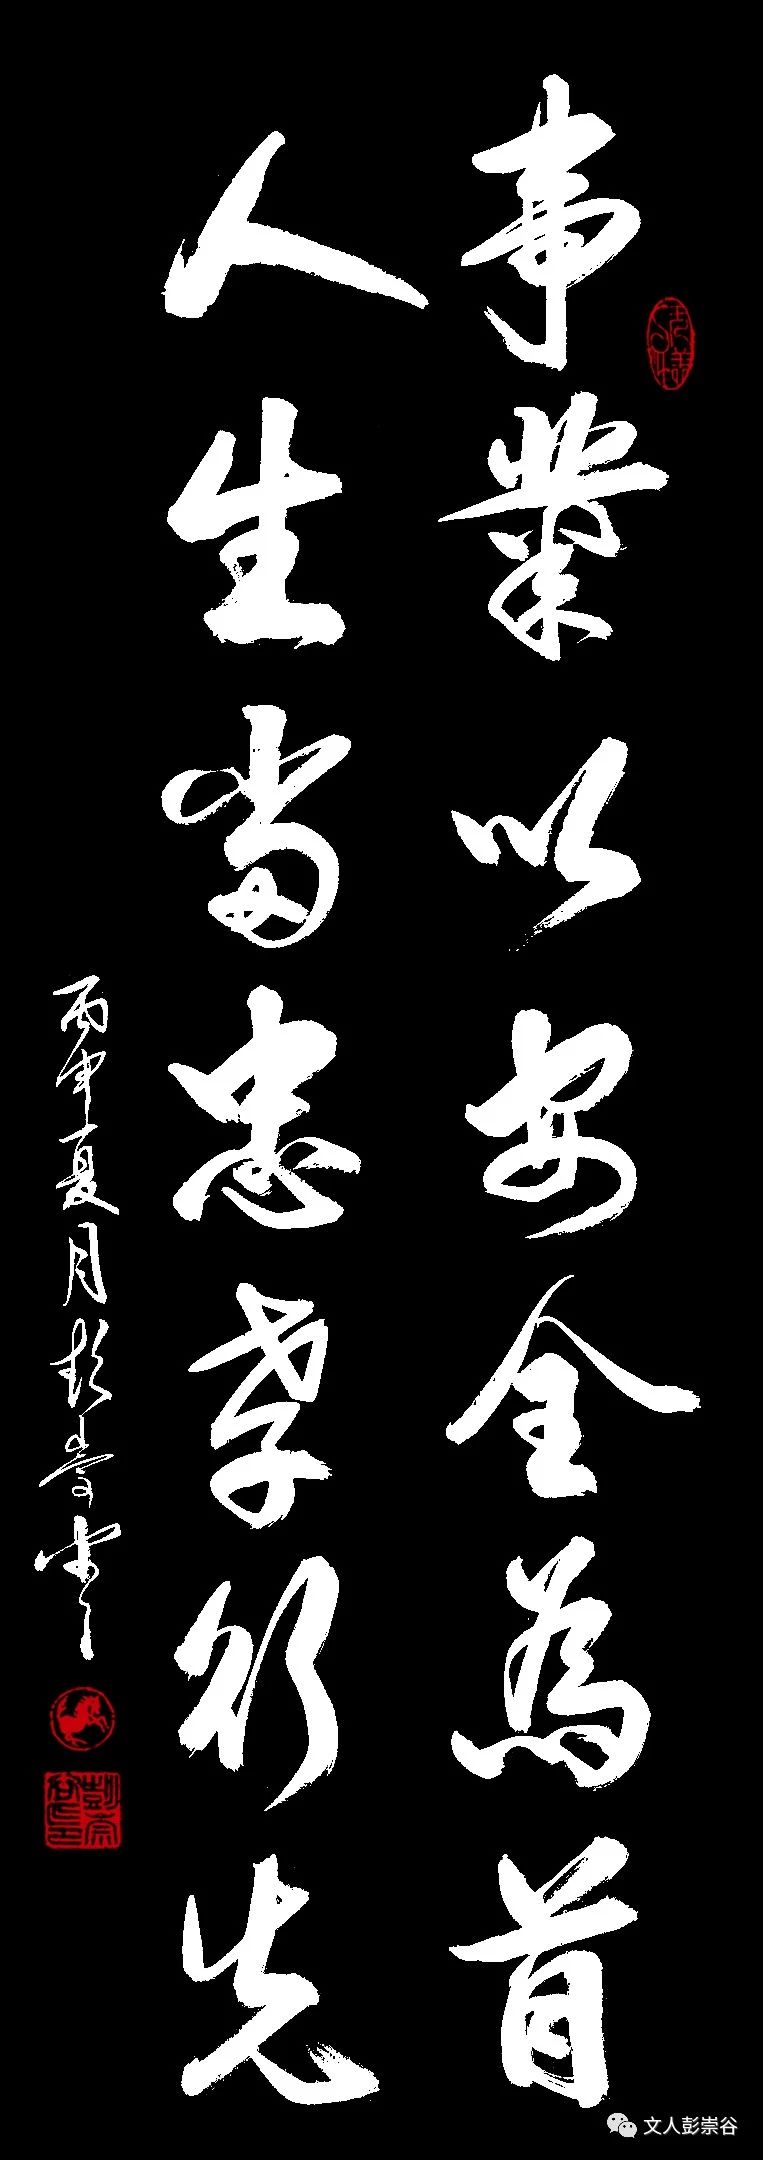 事業以安全為首
人生当忠孝行先
丙申夏月彭崇谷
文人彭崇谷